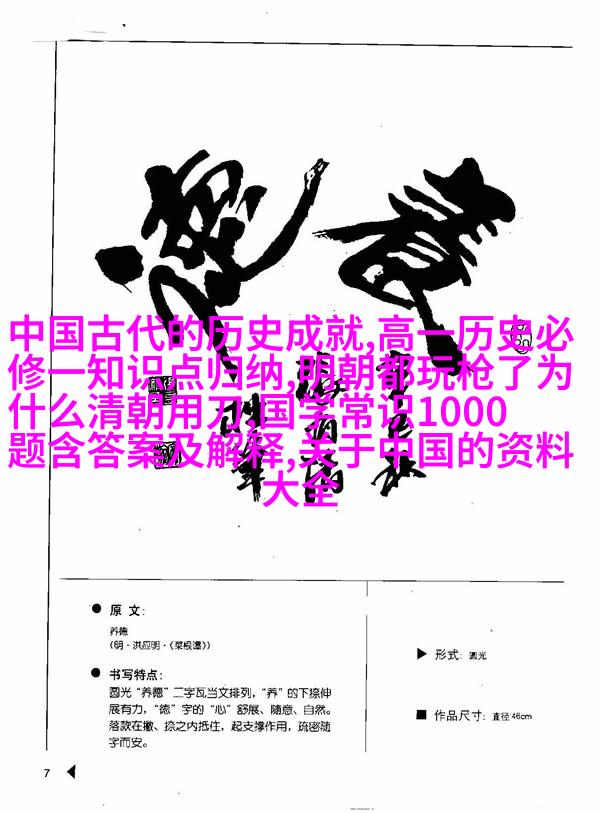 養德
中国古代的历史成就,高一历史必
修一知识点归纳,明朝都玩枪了为
什么清朝用刀,国学常识1000
题含答案及解释,关于中国的资料
大全
● 原 文：
养德
（明·洪应明·《菜根谭》）
● 书写特点：
圆光“养德”二字瓦当文排列，“养”的下捺伸
展有力，“德”字的“心”舒展、随意、自然。
落款在撇、捺之内抵住，起支撑作用，疏密随
字而安。
▶ 形式：圆光
■ 作品尺寸：直径46cm
7 ◀